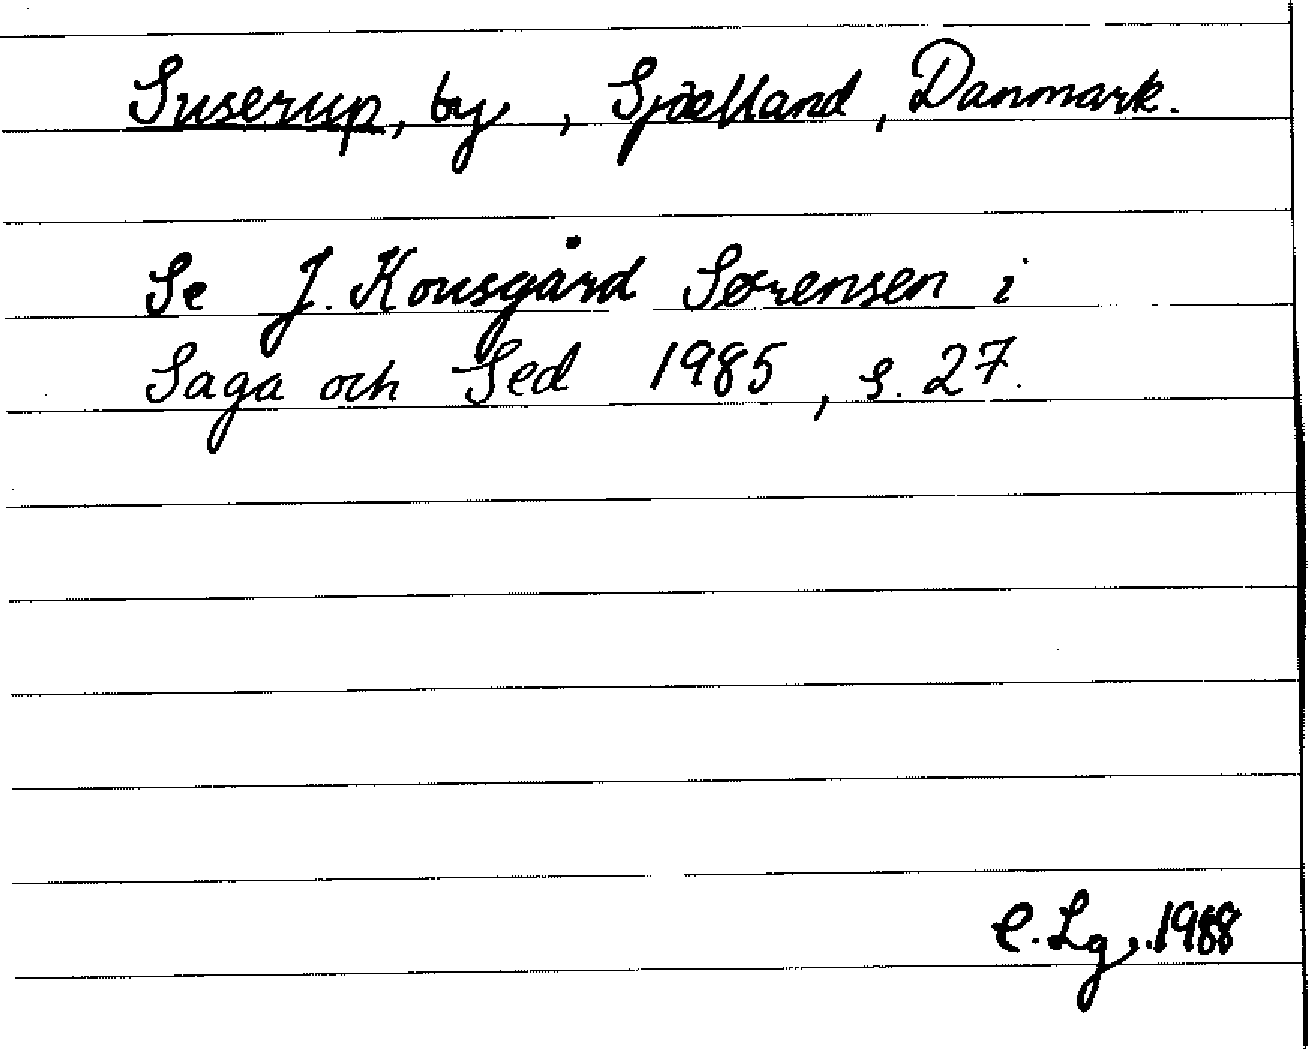 Suserup, by, Sjælland, Danmark.
Se J. Kousgård Sørensen i
Saga och Sed 1985, s. 27.
C. Lg. 1988